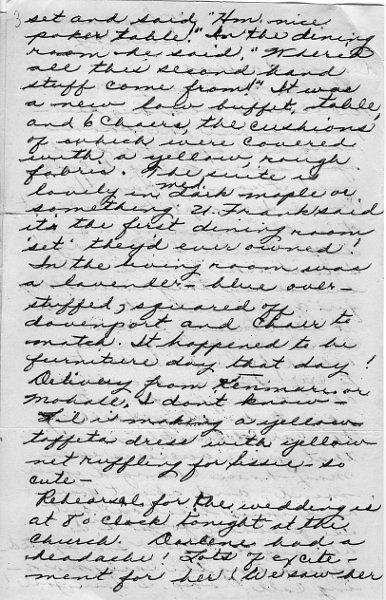 3 set and said, "Hm. nice
poker table!" In the dining
room he said, "Where'd
all this second hand
stuff come from!" It was
a new low buffet, table,
and 6 chairs, the cushions
of which were covered
with a yellow, rough
fabric. The suite is
lovely in med. dark maple or
something. U. Frank said
its the first dining room
'set' they'd ever owned!
In the living room was
a lavender-blue over-
stuffed, squared off
davenport and chair to
match. It happened to be
furniture day that day!
Delivery from Kenmare or
Mohall, I dont know -
Fil is making a yellow
taffeta dress with yellow
net ruffling for Sissie - so
cute -
Rehearsal for the wedding is
at 8 o clock tonight at the
church. Darlene had a
headache! Lots of excite-
ment for her! We saw her